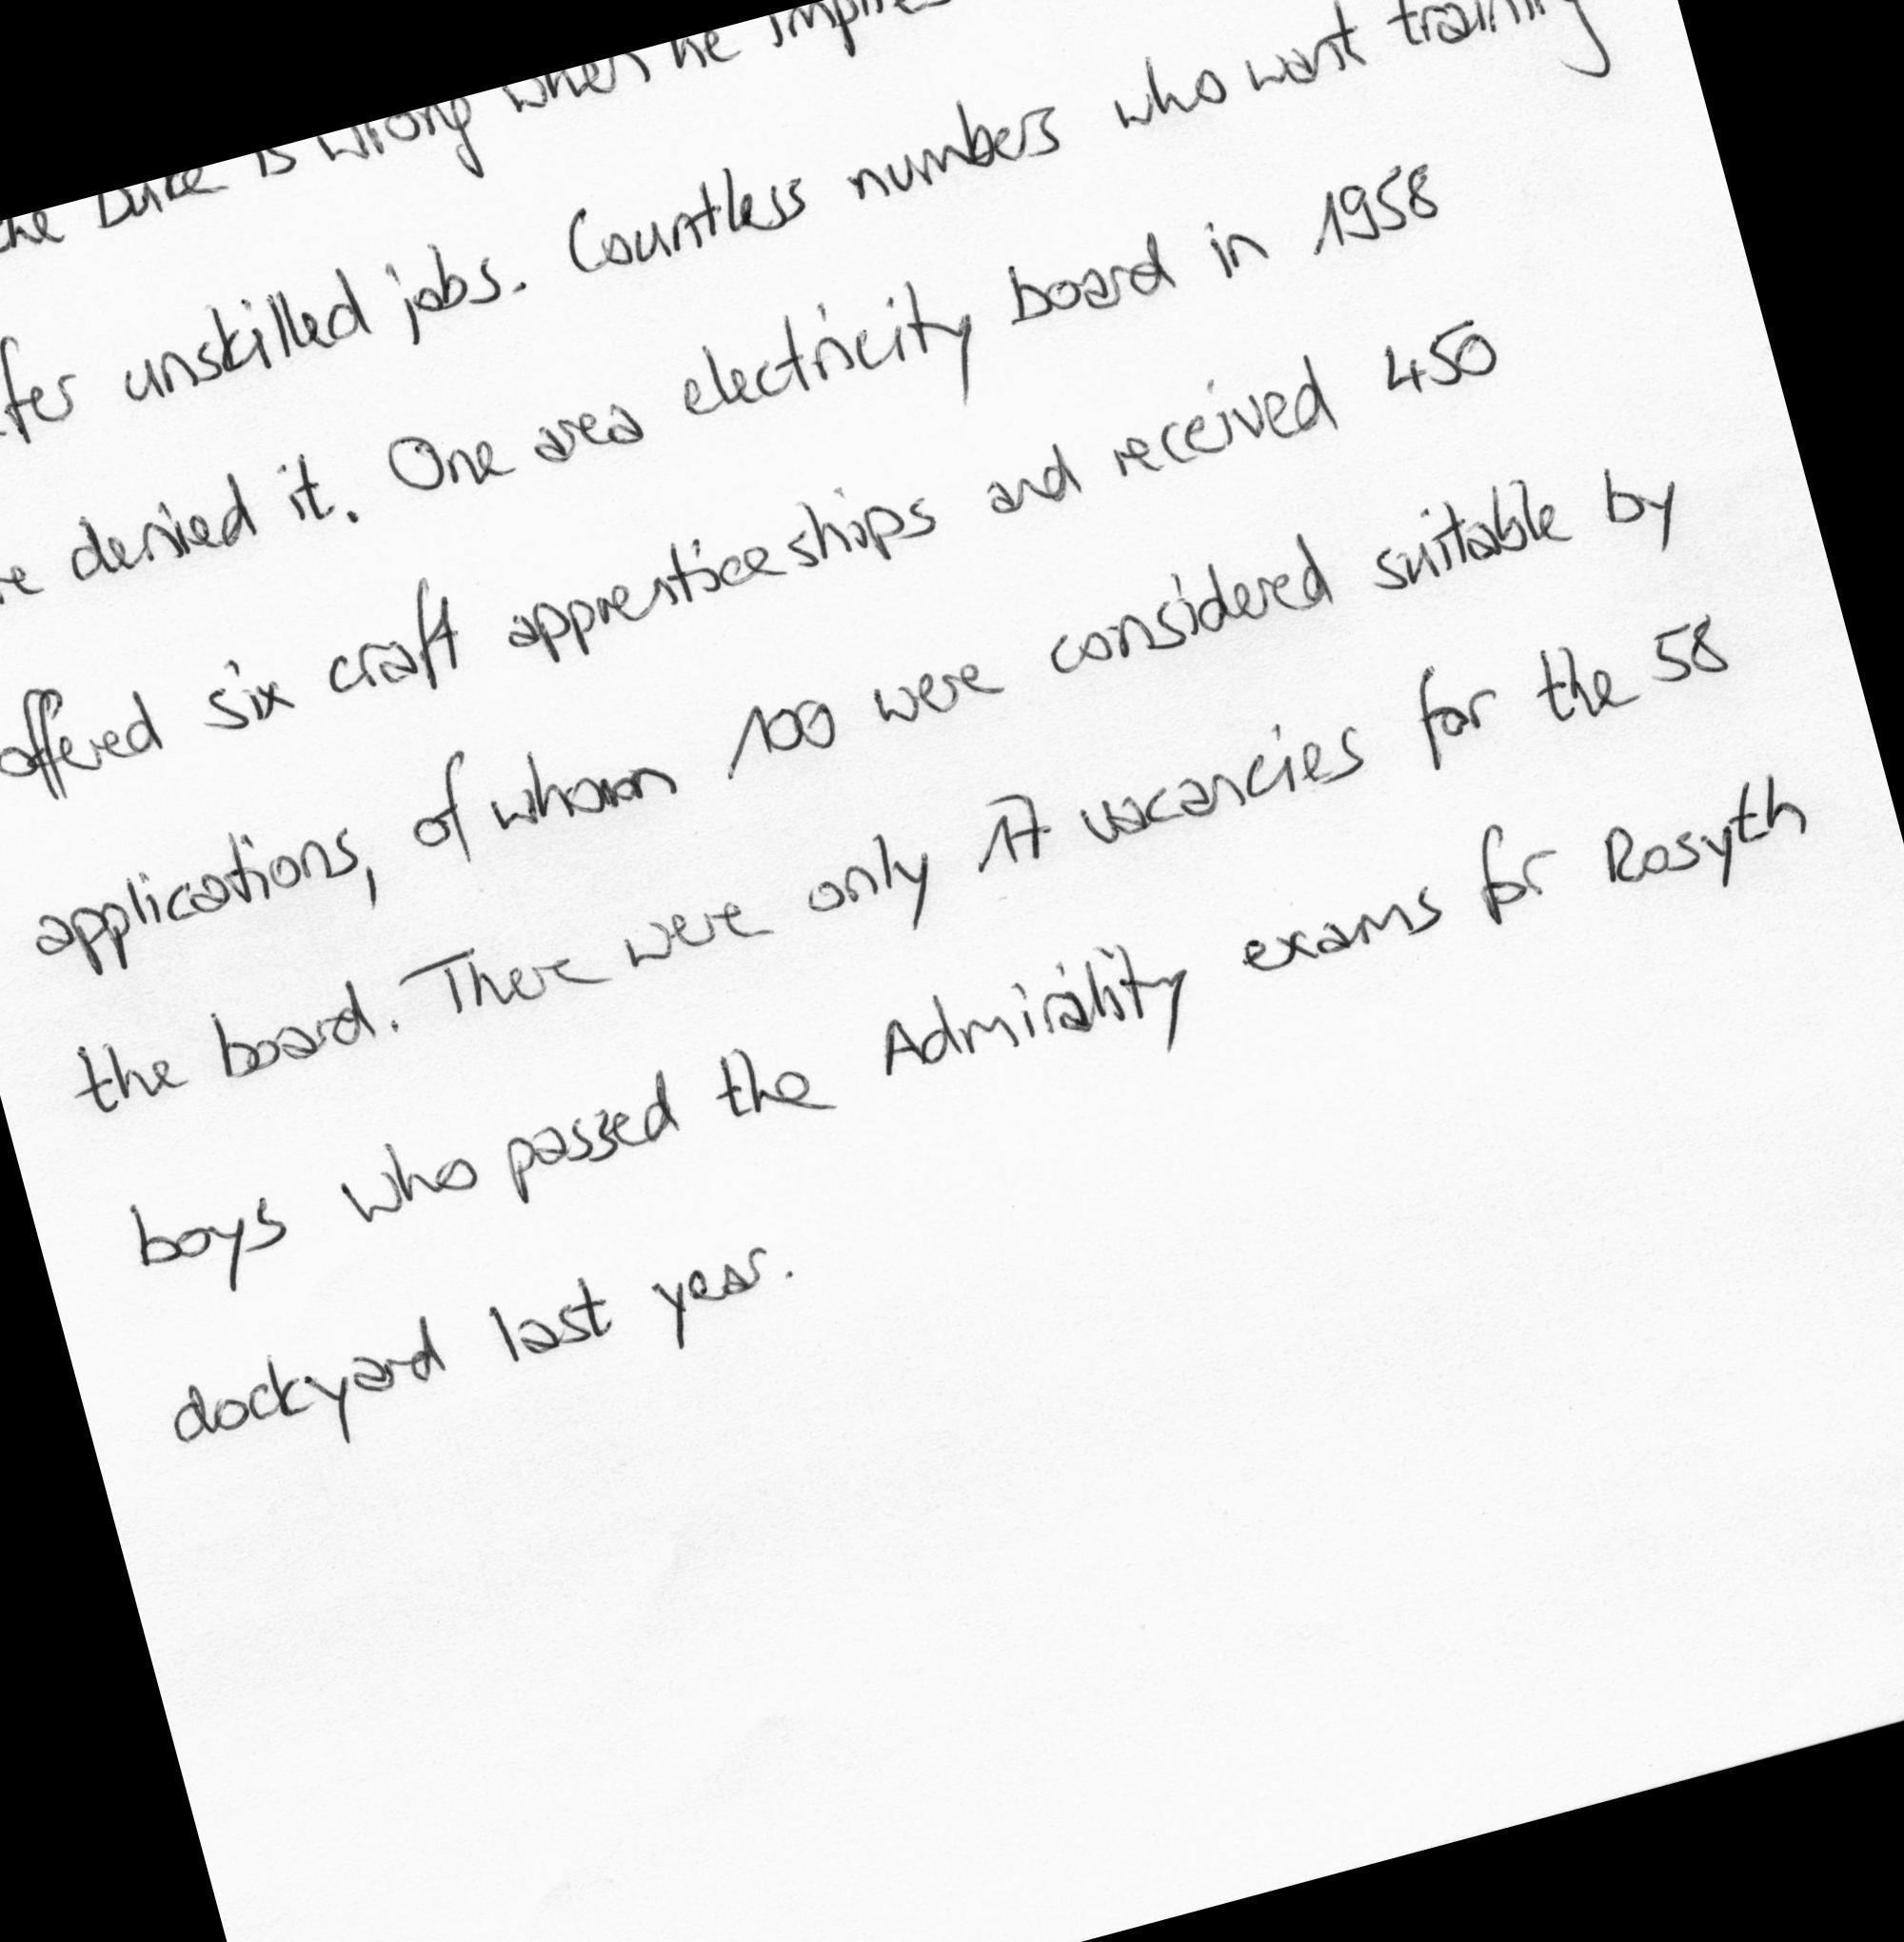 the Duke is wrong when he implies
unskilled jobs. Countless numbers who want training
denied it. One area electricity board in 1958
offered six craft apprenticeships and received 450
applications, of whom 100 were considered suitable by
the board. There were only 17 vacancies for the 58
boys who passed the Admirality exams for Rosyth
dockyard last year.